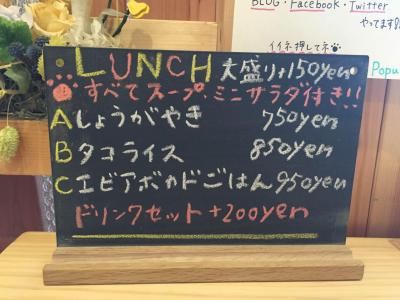 BLOG・Facebook・Twitter
やってます
イイネ押してネ
Popu
LUNCH 大盛り+150yen
すべてスープ ミニサラダ付き!!
A しょうがやき 750yen
B タコライス 850yen
C エビアボカドごはん 950yen
ドリンクセット +200yen